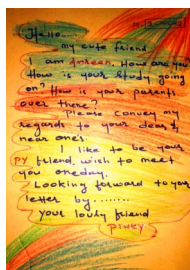 Hello..
my cute friend.
I am Amreen. How are you
How is your study going
on? How is your parents
over there?
Please convey my
regards to your dear &
near ones.
I like to be your
PY friend, wish to meet
you oneday.
Looking forward to your
letter by........
your lovly friend